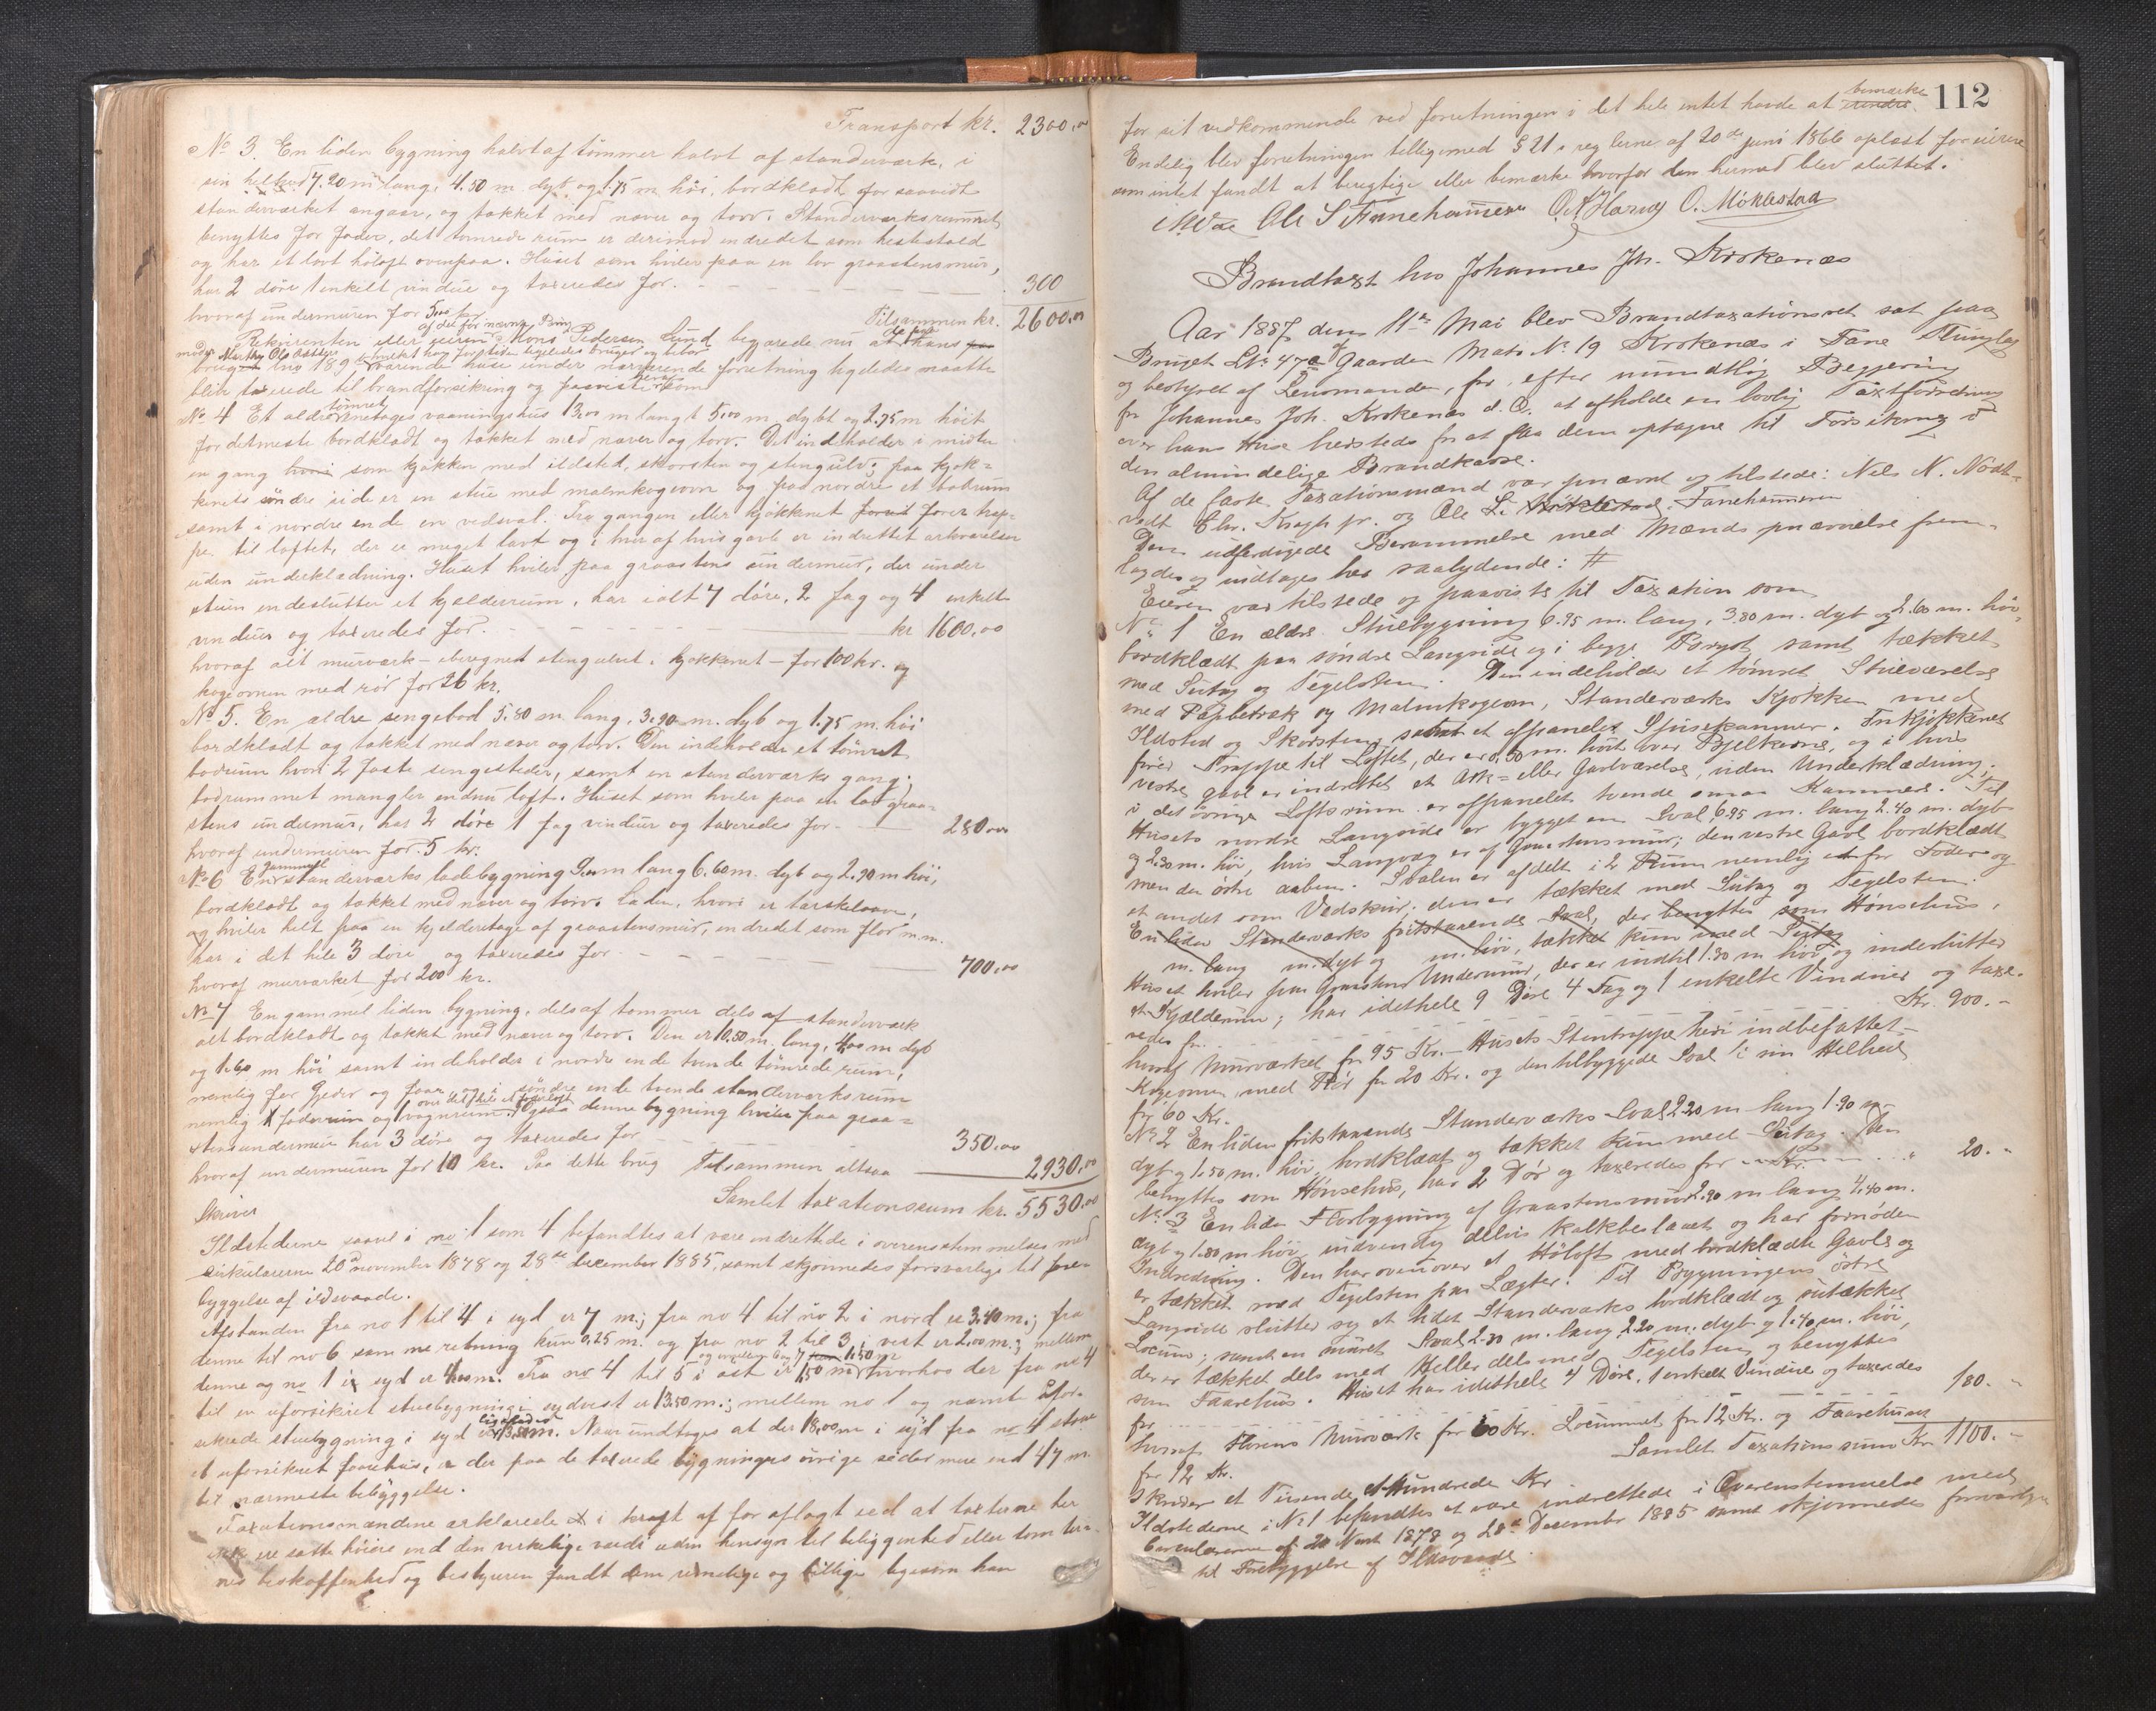 Transport kr. 2300,00
No 3. En liden bygning halvt af tömmer halvt af standerværk, i
sin helhed 7.20 m lang, 4.50 m. dyb og 1.75 m. höi, bordklædt for saavidt
standerværket angaar, og takket med næver og torv. Standerværksrummet
benyttes for foder, det tömrede rum er derimod indredet som hestestald
og har et lavt höloft ovenpaa. Huset som hviler paa en lav graastensmur,
har 2 döre 1 enkelt vindue og taxeredes for. 300
hvoraf undermuren for 5,00 kr. Tilsammen kr. 2600,00
Rekvirenten eller eieren Mons Pedersen Lund begjærede nu at hans
blive taxerede til brandforsikring og paaviste som
No 4 Et ældre tömret enetages vaaningshus 13,00 m langt 5,00 m. dybt og 2,75 m höit
for detmeste bordklædt og takket med næver og torv. Det indeholder i midten
en gang som kjökken med ildsted, skorsten og stengulv; paa kjök-
kenets söndre side er en stue med malmkogeovn og paa nordre et bodrum
samt i nordre ende en vedsval. Fra gangen eller kjökkenet förer trap-
pe til loftet, der er meget lavt og i hver af hvis gavle er indrettet arkværelser
uden underklædning. Huset hviler paa graastens undermur, der under
stuen indeslutter et kjelderrum, har ialt 7 döre, 2 fag og 4 enkelte
vinduer og taxeredes for. kr 1600,00
hvoraf alt murværk – iberegnet stengulvet i kjökkenet – for 100 kr. og
kogeovnen med rör for 26 kr.
No 5. En ældre sengebod 5.80 m lang, 3.90 m. dyb og 1.75 m. höi
bordklædt og takket med næver og torv. Den indeholder et tömret
bodrum hvori 2 faste sengesteder, samt en standerværks gang;
bodrummet mangler endnu loft. Huset som hviler paa en lav graa-
stens undermur, har 2 döre 1 fag vinduer og taxeredes for 280,00
hvoraf undermuren for 5 kr.
No 6 En gammel standerværks ladebygning lang 6.60 m. dyb og 2.90 m höi,
bordklædt og takket med næver og torv. Laden, hvori er tærskelaave,
og hviler helt paa en kjelderetage af graastensmur, indredet som flor m.m.
har i det hele 3 döre og taxeredes for 700,00
hvoraf murværket for 200 kr.
No 7 En gammel liden bygning, dels af tömmer dels af standerværk
alt bordklædt og takket med næver og torv. Den er 10.50 m. lang, 4,00 m dyb
og 1.60 m höi samt indeholder i nordre ende tvende tömrede rum,
nemlig for gjeder og faar, og i söndre ende tvende standerværksrum
nemlig foderrum og vognrum. Ogsaa denne bygning hviler paa graa-
stens undermur har 3 döre og taxeredes for 350,00
hvoraf undermuren for 10 kr. Paa dette brug Tilsammen altsaa 2930,00
Skriver Samlet taxationssum kr. 5530,00
Ildstederne saavel i no 1 som 4 befandtes at være indrettede i overensstemmelse med
cirkulærerne 20d november 1878 og 28de december 1885, samt skjönnedes forsvarlige til fore-
byggelse af ildsvaade.
Afstanden fra no 1 til 4 i syd er 7 m.; fra no 4 til no 2 i nord er 3,40 m.; fra
denne til no 6 samme retning kun 0,25 m. og fra no 2 til 3 i vest er 2.00 m.; mellem
denne og no 1 i syd er 4,00 m. Fra no 4 til 5 i öst er 1,50 m, hvorhos der fra no 4
til en uforsikret stuebygning i sydvest er 13.50 m.; mellem no 1 og nævnte ufor-
sikrede stuebygning i syd er ligeledes 13,50 m. Naar undtages at der 18,00 m i syd fra no 4 staar
et uforsikret faarehus, er der paa de taxerede bygningers övrige sider mere end 47 m.
til nærmeste bebyggelse.
Taxationsmændene erklærede i kraft af for aflagt ed at taxterne her
ikke ere satte höiere end den virkelige værdi uden hensyn til beliggenhed eller tomter-
nes beskaffenhed og bestyreren fandt dem rimelige og billige ligesom han
112
for sit vedkommende ved forretningen i det hele intet havde at bemærke
Endelig blev forretningen tilligemed § 21 i reglerne af 20de juni 1866 oplæst for eieren
som intet fandt at berigtige eller bemærke hvorfor den hermed blev sluttet.
Ole S Fanehammeren O. Möklestad
Brandtaxt hos Johannes Joh. Krokenæs
Aar 1887 den 11te Mai blev Brandtaxationsret sat paa
Bruget Lb. 47a af Gaarden Matr No 19 Krokenæs i Fane Thinglag
og bestyret af Lensmanden, for efter mundtlig Begjering
fra Johannes Joh. Krokenæs d. D. at afholde en lovlig Taxtforretning
over hans Huse hersteds for at faa dem optagne til Forsikring i
den almindelige Brandkasse.
Af de faste Taxationsmænd var fremmødt og tilstede: Nils N. Nödt-
vedt Chr. Krogh jr. og Ole S. Fanehammeren
Den udfærdigede Berammelse med Mænds opnævnelse frem-
lagdes og indtages her saalydende: #
Eieren var tilstede og paaviste til Taxation som
No 1 En ældre Stuebygning 6.95 m. lang, 3,80 m. dyb og 2.60 m. höi,
bordklædt paa söndre Langside og i begge Bryst samt tækket
med Sutag og Tegelsten. Den indeholder et tömret Stueværelse
med Papbetræk og Malmkogeovn, Standerværks Kjökken med
Ildsted og Skorsten, samt et afpanelet Spisekammer. Fra Kjökkenet
förer Trappe til Loftet, der er 0,50 m. höit over Bjelkerne, og i hvis
vestre gavl er indrettet et Ark- eller Gavlværelse, uden Underklædning;
i det övrige Loftsrum er afpanelet tvende smaa Kammer. Til
Husets nordre Langside er bygget en Sval 6.95 m. lang 2.40 m. dyb
og 2.30 m. höi, hvis Langvæg er af Graastensmur; den vestre Gavl bordklædt
men den östre aaben. Svalen er afdelt i 2 Rum nemlig et for Foder og
et andet som Vedskur; den er tækket med Sutag og Tegelsten.
En liden Standerværks fritstaaende Sval, der benyttes som Hönsehus,
m. lang m. dyb og m. höi, tækket kun med Sutag
Huset hviler paa Graastens Undermur, der er indtil 1.30 m höi og indeslutter
et Kjælderrum; har idethele 9 Döre 4 Fag og 1 enkelte Vinduer og taxe-
redes for Kr. 900.-
hvoraf Murværket for 95 Kr. – Husets Stentrappe heri indbefattet –
Kogeovnen med Rör for 20 Kr. og den tilbyggede Sval i sin Helhed
for 60 Kr.
No 2 En liden fritstaaende Standerværks Sval 2.20 m lang 1.90 m
dyb og 1.50 m. höi bordklædt og tækket kun med Sutag. Den
benyttes som Hönsehus, har 2 Dör og taxeredes for 20. -
No 3 En liden Florbygning af Graastensmur 2.90 m lang 4.40 m.
dyb og 1.80 m höi, indvendig delvis kalkbeslaaet og har fornöden
Indredning. Den har ovenover et Höloft med bordklædte Gavle og
er tækket med Tegelsten paa Lægter. Til Bygningens östre
Langside slutter sig et lidet Standerværks bordklædt og sutækket
Locum; samt en muret Sval 2.30 m. lang 2.20 m. dyb og 1.40 m. höi,
der er tækket dels med Heller dels med Tegelsten og benyttes
som Faarehus. Huset har idethele 4 Döre, 1 enkelt Vindue og taxeredes
for 180. -
hvoraf Florens Murværk for 60 Kr. Locummet for 12 Kr. og Faarehuset
for 12 Kr. Samlet Taxationssum Kr 1100. -
Skriver et Tusende et Hundrede Kr
Ildstederne i No 1 befandtes at være indrettede i Overenstemmelse med
Circulærerne af 20 Novb 1878 og 28de Desember 1885 samt skjönnedes forsvarlige
til Forebyggelse af Ildsvaade.